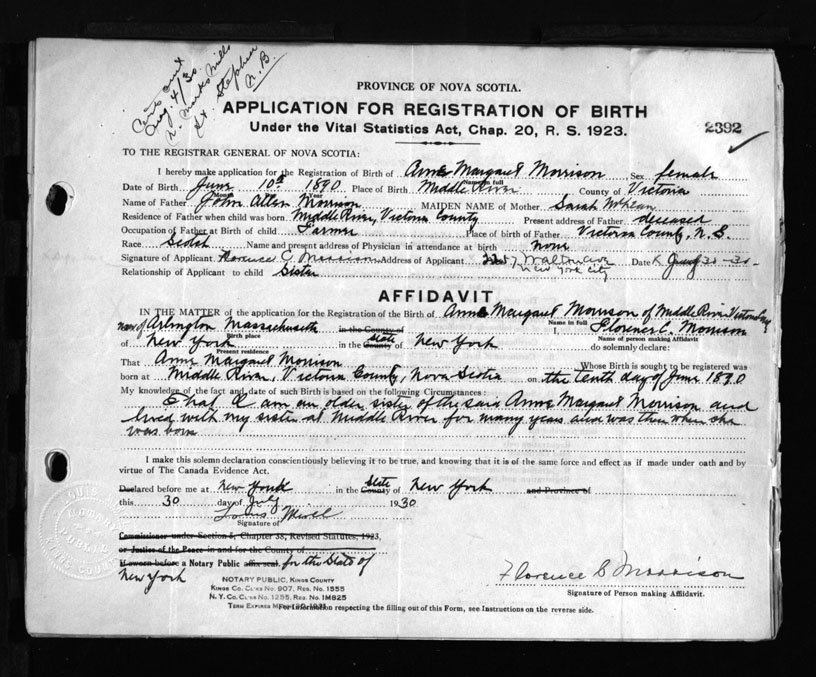 Cert. sent
Aug. 4/30
Mills
St. Stephen
N.B.
PROVINCE OF NOVA SCOTIA.
APPLICATION FOR REGISTRATION OF BIRTH
Under the Vital Statistics Act, Chap. 20, R. S. 1923.
2392
TO THE REGISTRAR GENERAL OF NOVA SCOTIA:
I hereby make application for the Registration of Birth of Anne Margaret Morrison Sex female
Name in full
Date of Birth June 10th 1890 Place of Birth Middle River County of Victoria
Month Year
Name of Father John Allan Morrison MAIDEN NAME of Mother Sarah McLean
Residence of Father when child was born Middle River, Victoria County Present address of Father deceased
Occupation of Father at Birth of child Farmer Place of birth of Father Victoria County, N.S.
Race Scotch Name and present address of Physician in attendance at birth none
Signature of Applicant Florence C. Morrison Address of Applicant Date 30-30-
New York City
Relationship of Applicant to child Sister
AFFIDAVIT
IN THE MATTER of the application for the Registration of the Birth of Anne Margaret Morrison of Middle River Victoria
now of Arlington Massachusetts in the County of Name in full I, Florence C. Morrison
Birth place Name of person making Affidavit
of New York in the County State of New York do solemnly declare:
Present residence
That Anne Margaret Morrison Whose Birth is sought to be registered was
born at Middle River, Victoria County, Nova Scotia on the tenth day of June 1890
My knowledge of the fact and date of such Birth is based on the following Circumstances:
That I am an older sister of the said Anne Margaret Morrison and
lived with my sister at Middle River for many years and was then when she
was born
I make this solemn declaration conscientiously believing it to be true, and knowing that it is of the same force and effect as if made under oath and by
virtue of The Canada Evidence Act.
Declared before me at New York in the County State of New York and Province of
this 30 day of July 1930
Louis
Signature of
Commissioner under Section 5, Chapter 38, Revised Statutes, 1923,
or Justice of the Peace in and for the County of
If sworn before a Notary Public affix seal. for the State of
New York
Florence C. Morrison
Signature of Person making Affidavit.
NOTARY PUBLIC, KINGS COUNTY
KINGS CO. CLKS NO. 907, REG. NO. 1555
N. Y. CO. CLKS NO. 1255, REG. NO. 1M825
TERM EXPIRES
For Information respecting the filling out of this Form, see Instructions on the reverse side.
LOUIS
NOTARY
PUBLIC
KINGS COUNTY